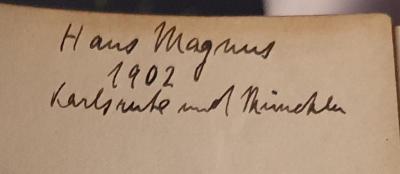 Hans Magnus
1902
Karlsruhe und München